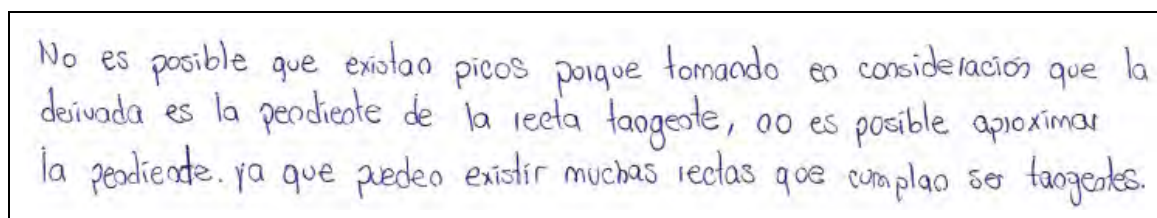 No es posible que existan picos porque tomando en consideración que la
derivada es la pendiente de la recta tangente, no es posible aproximar
la pendiente. ya que pueden existir muchas rectas que cumplan ser tangentes.